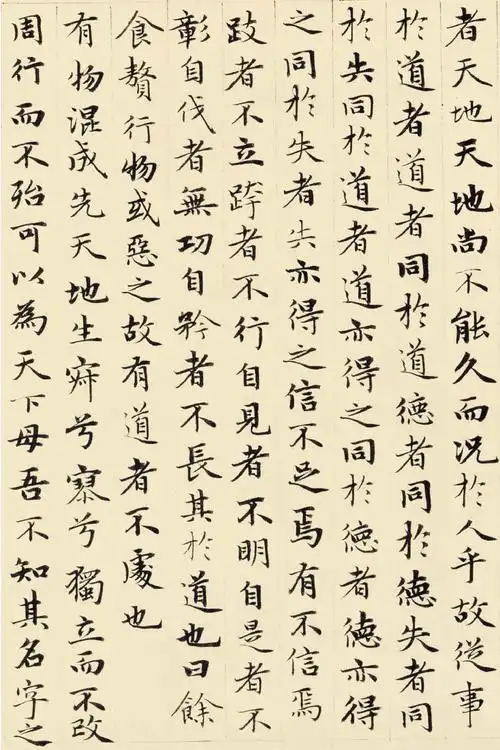 者天地天地尚不能久而況於人乎故從事
於道者道者同於道德者同於德失者同
於失同於道者道亦得之同於德者德亦得
之同於失者失亦得之信不足焉有不信焉
跂者不立跨者不行自見者不明自是者不
彰自伐者無功自矜者不長其於道也曰餘
食贅行物或惡之故有道者不處也
有物混成先天地生寂兮寥兮獨立而不改
周行而不殆可以為天下母吾不知其名字之